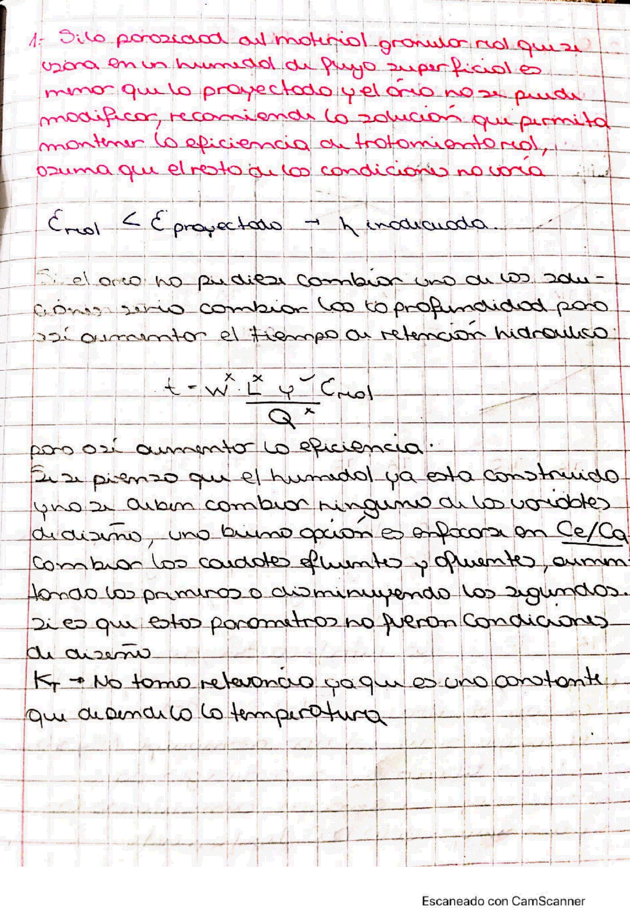 1- Si la porosidad del material granular real que se
usara en un humedal de flujo superficial es
menor que lo proyectado y el área no se puede
modificar, recomiende la solución que permita
mantener la eficiencia de tratamiento real,
asuma que el resto de las condiciones no varía
Ɛreal < Ɛ proyectado → h inadecuada.
Si el area no pudiese cambiar una de las solu-
ciones seria cambiar las la profundidad para
así aumentar el tiempo de retención hidraulico.
t = W L y Ɛreal
Q
para así aumentar la eficiencia.
Si se piensa que el humedal ya esta construido
y no se deben cambiar ninguna de las variables
de diseño, una buena opción es enfocarse en Ce/Ca
Cambiar los caudales efluentes y afluentes, aumen
tando los primeros o disminuyendo los segundos.
si es que estos parametros no fueron condiciones
de diseño
KT → No toma relevancia ya que es una constante
que depende la temperatura
Escaneado con CamScanner